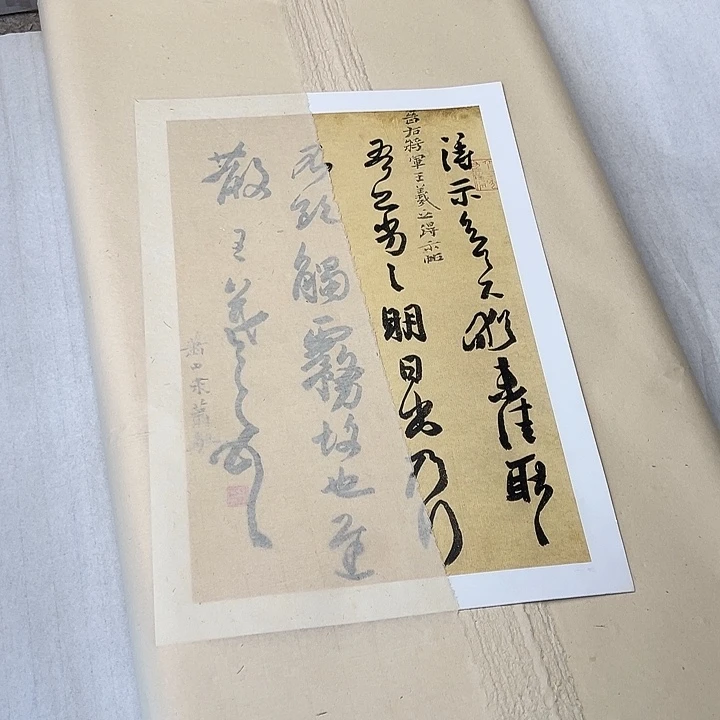 得示知足下猶未佳耿耿
晉右將軍王羲之得示帖
吾亦劣劣明日出乃行
不欲觸霧故也遲
散王羲之頓首